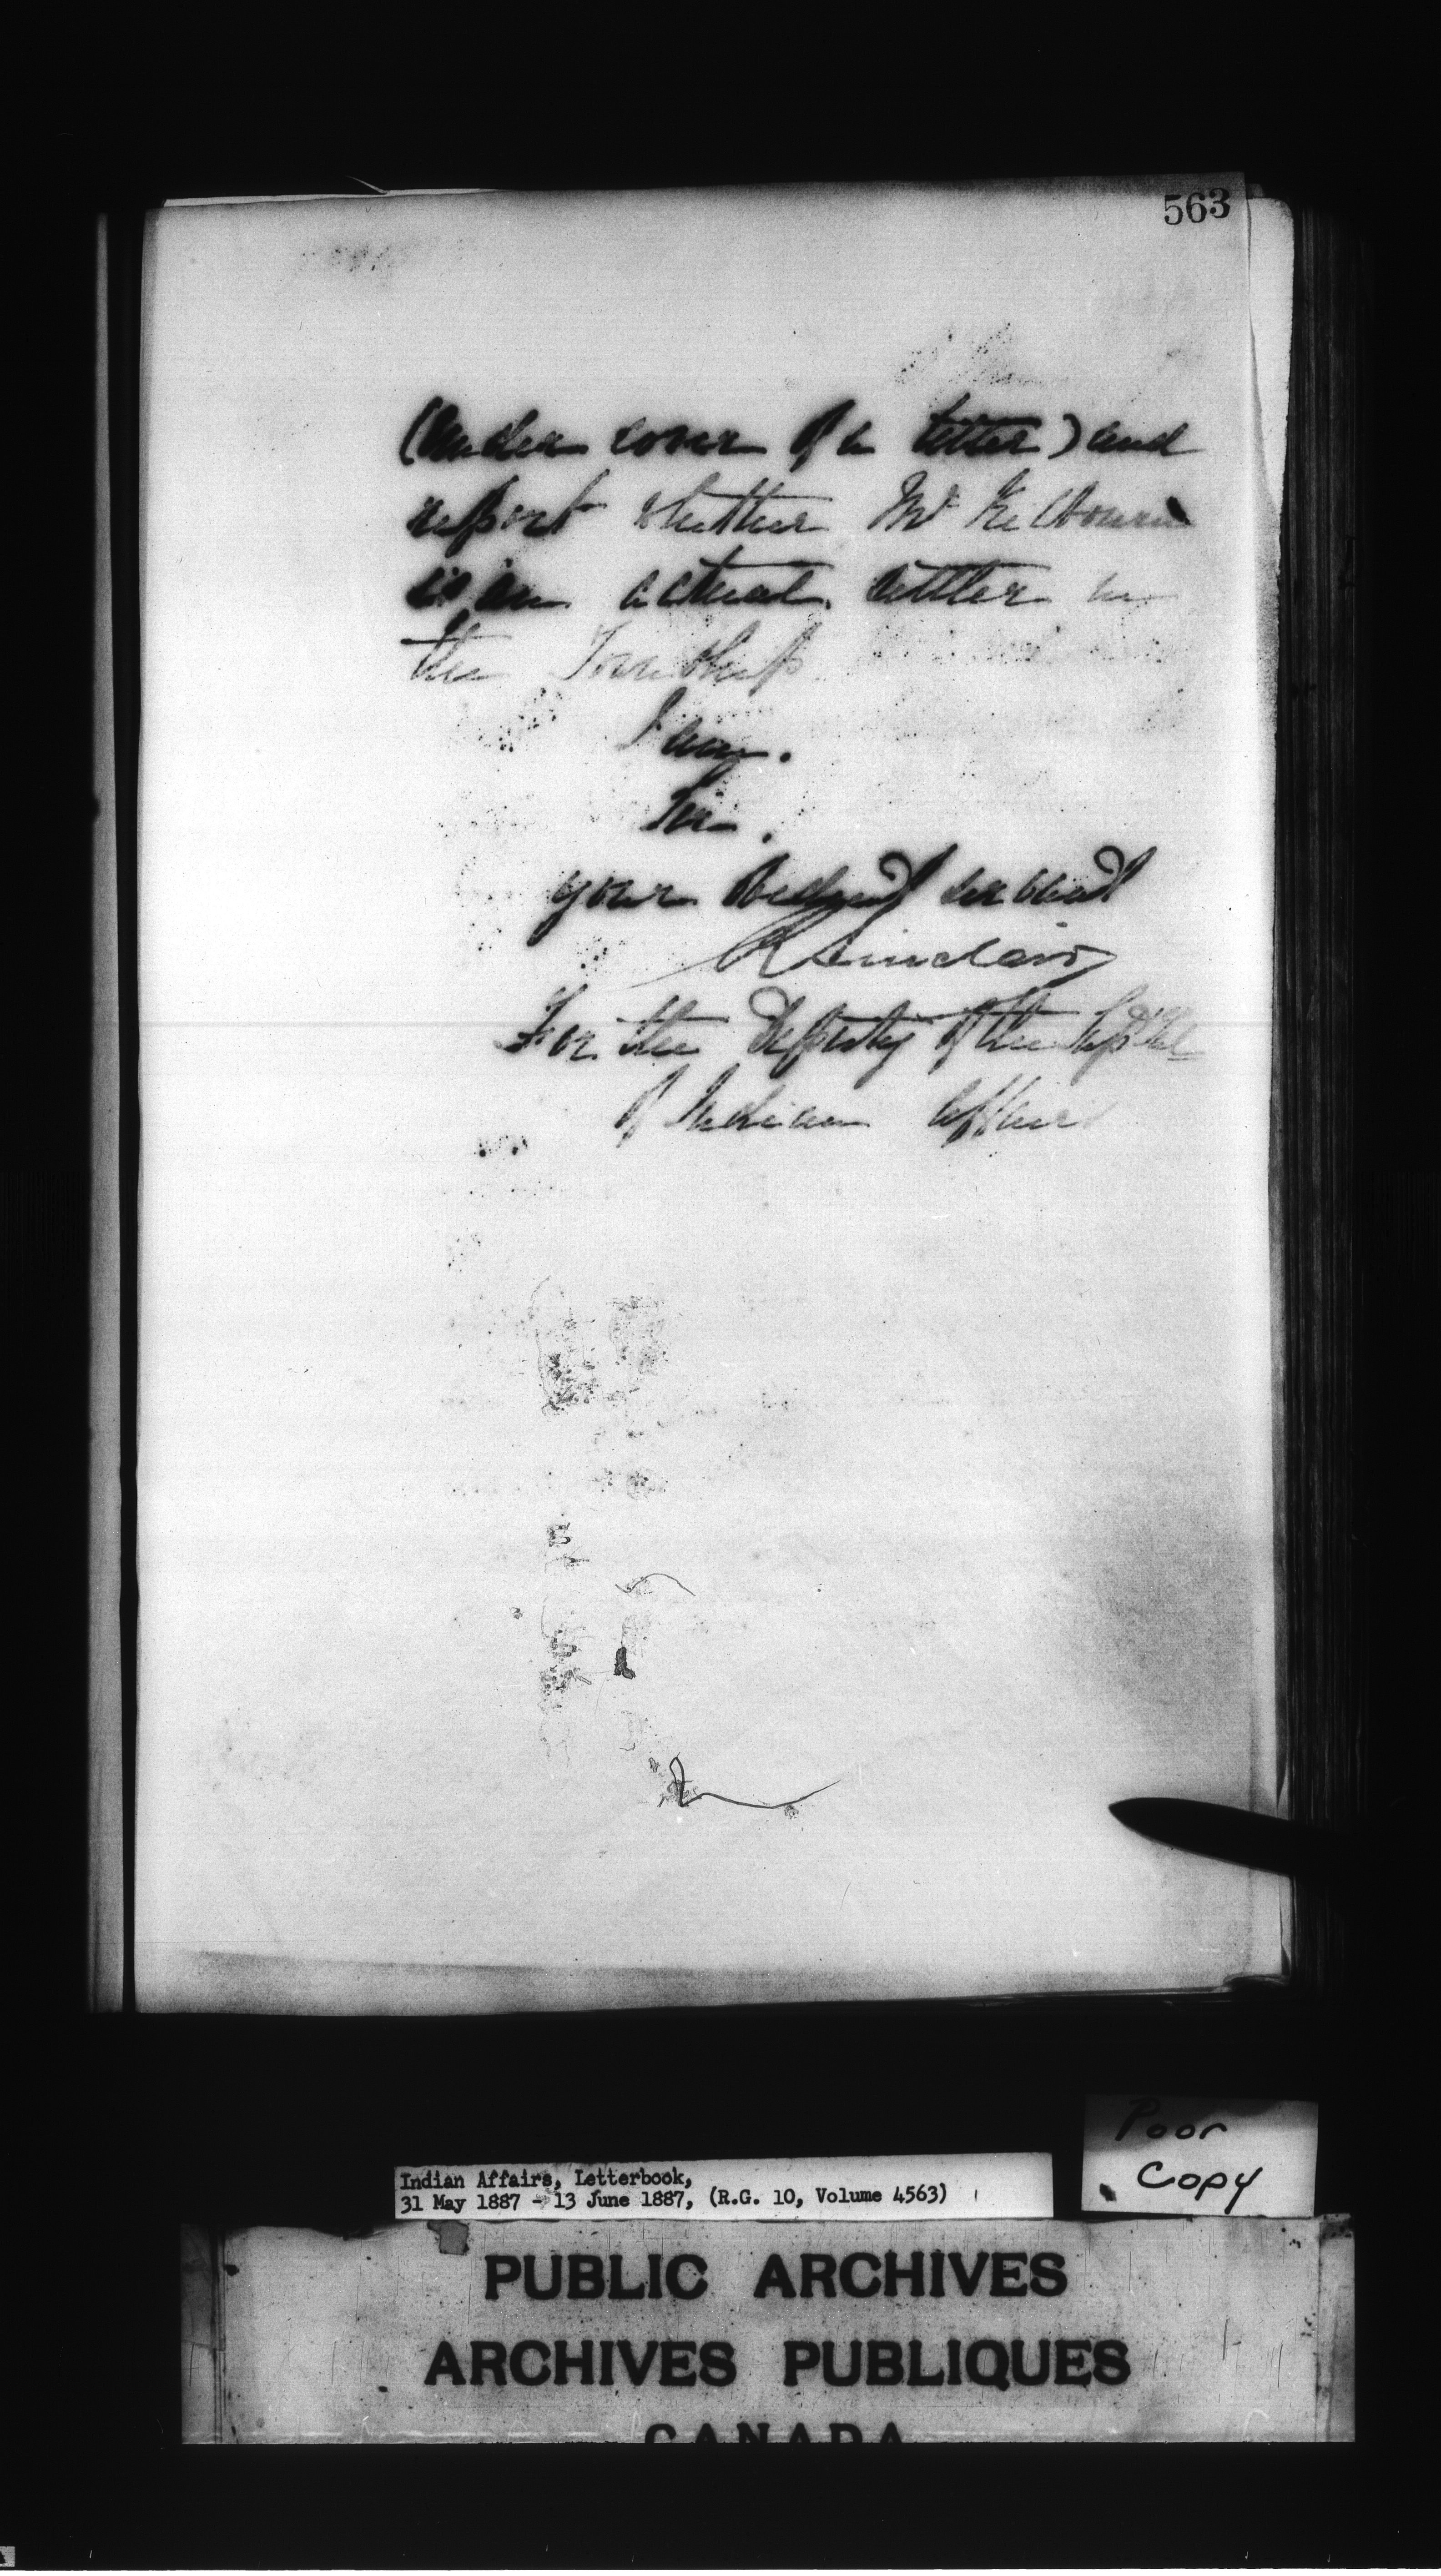 563
(under cover of a letter) and
report whether Mr Kilbourne
is an actual settler in
the Township
I am.
Sir.
your obedient servant
R Sinclair
For the Deputy of the Supt Genl
of Indian Affairs
Poor
Copy
Indian Affairs, Letterbook,
31 May 1887 - 13 June 1887, (R.G. 10, Volume 4563)
PUBLIC ARCHIVES
ARCHIVES PUBLIQUES
CANADA